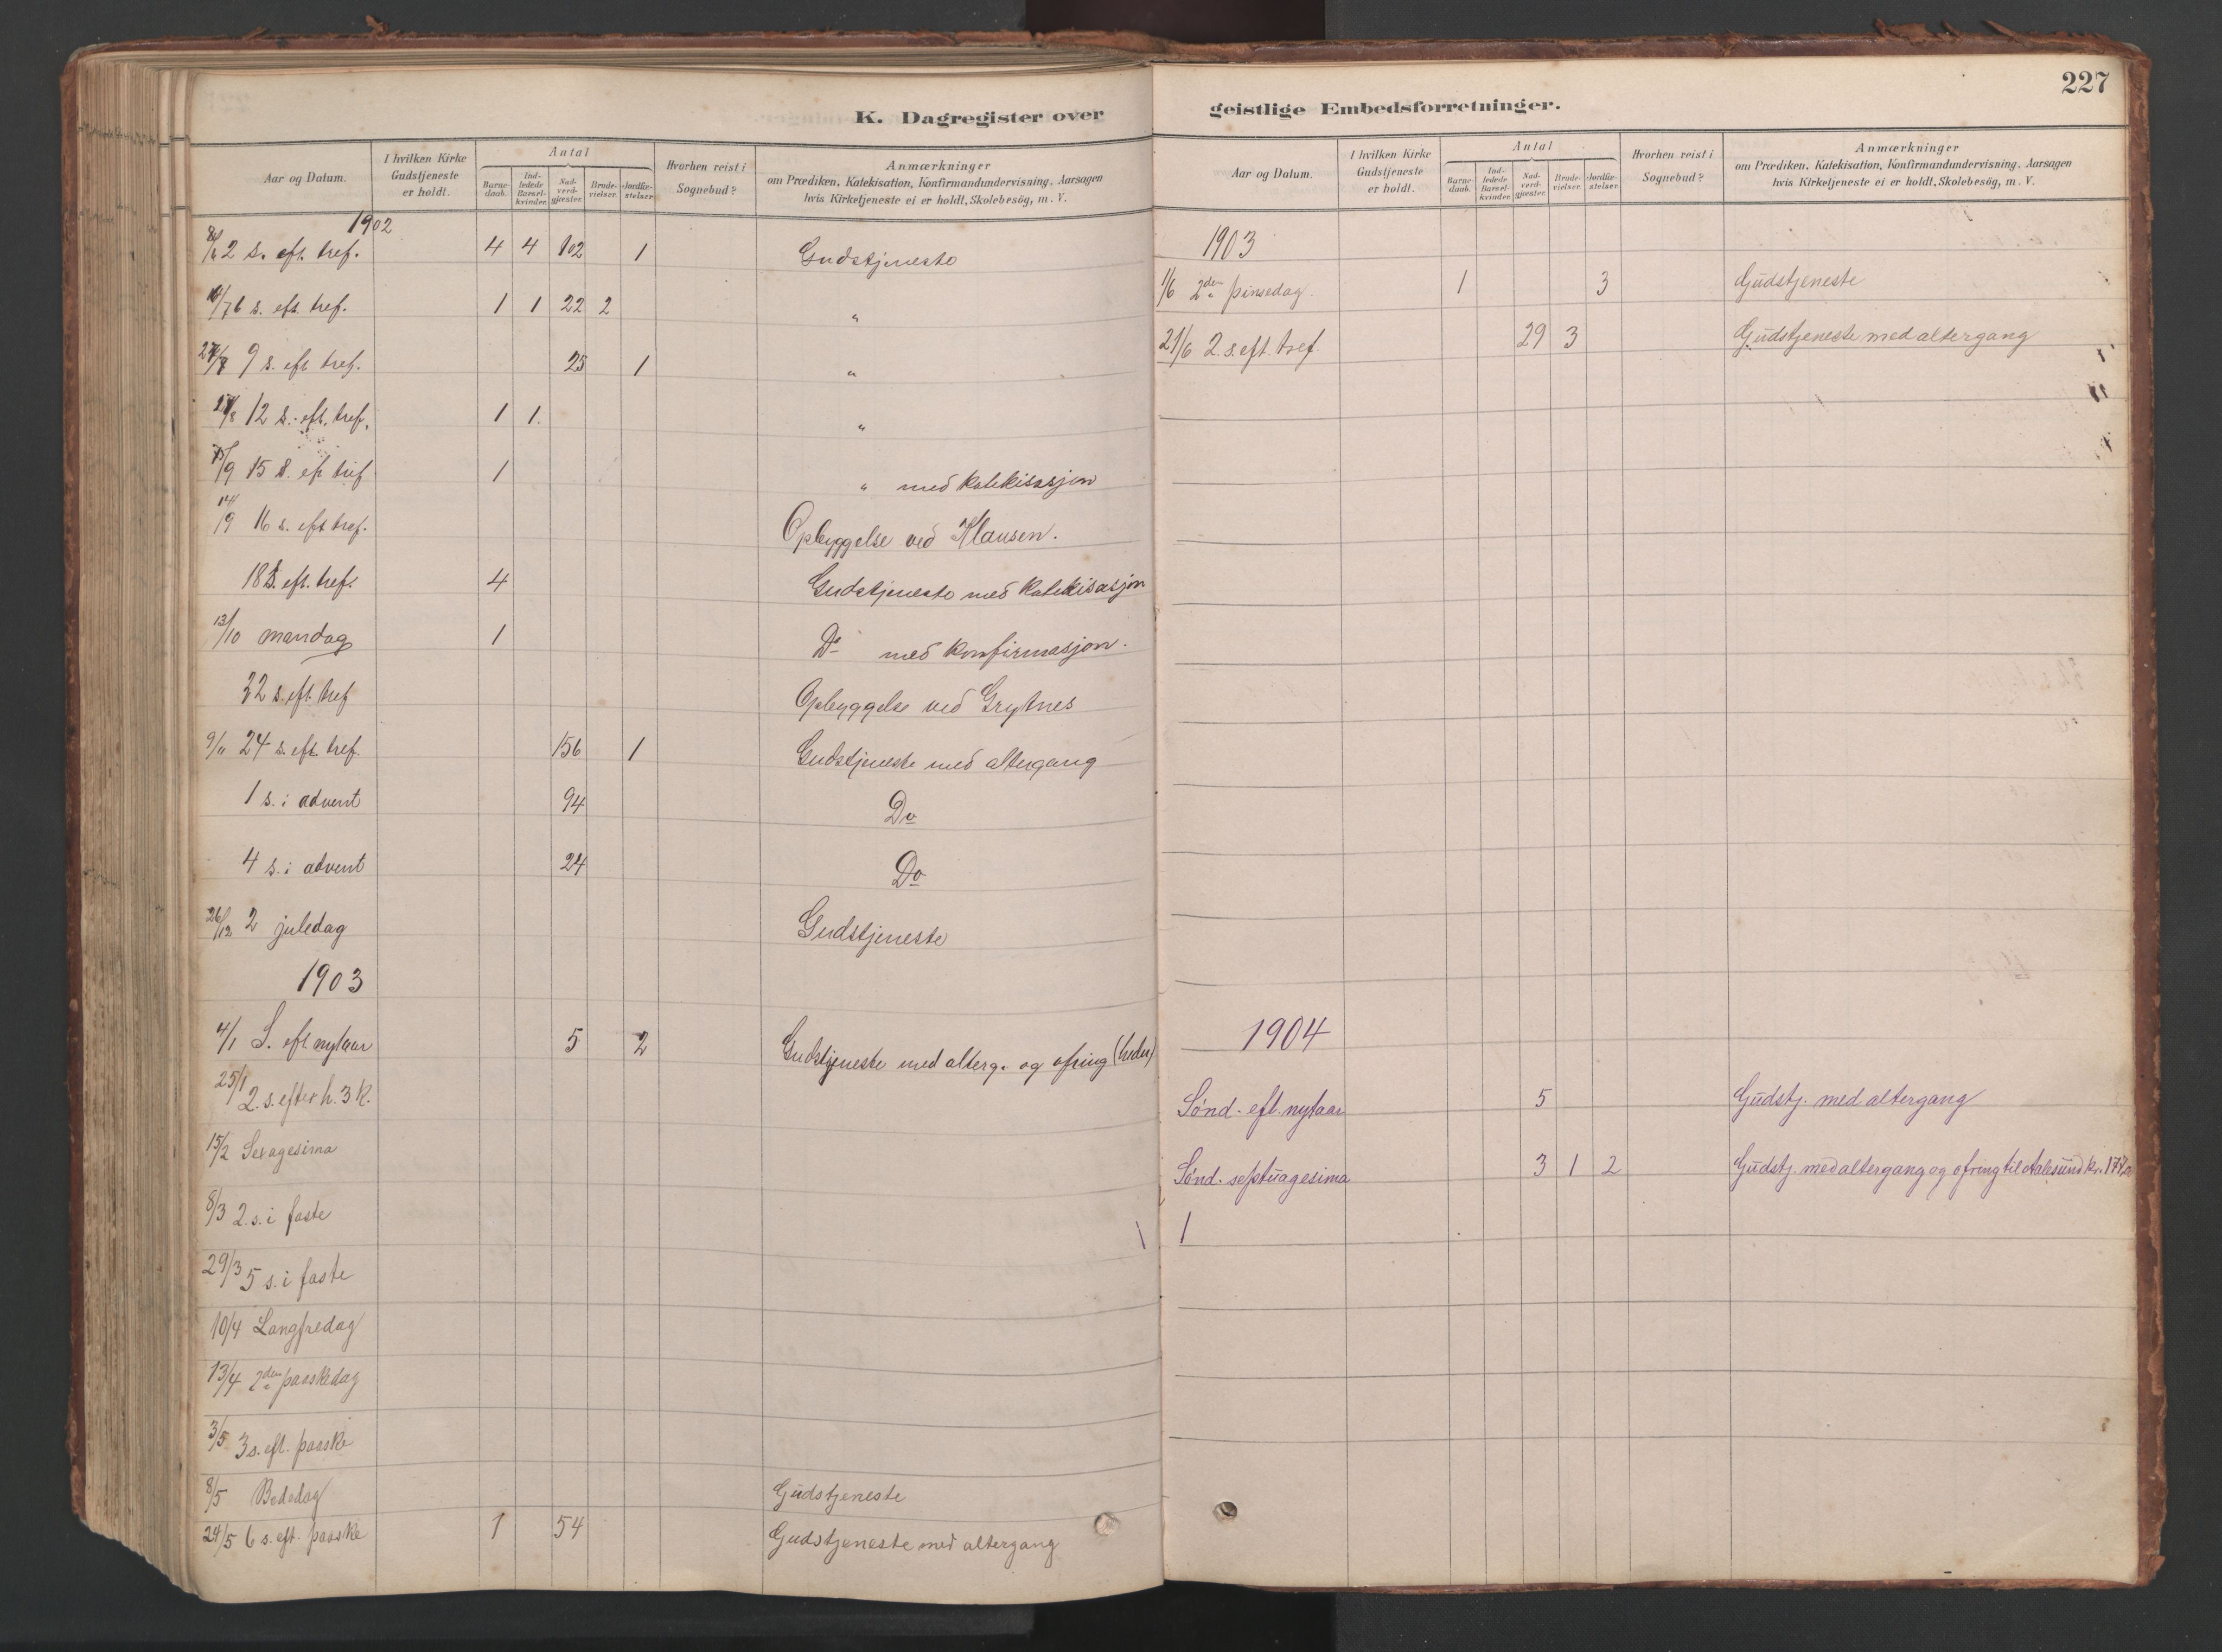 K. Dagregister over
Aar og Datum.
I hvilken Kirke Gudstjeneste er holdt.
Antal
Barne-daab.
Ind-ledede Barsel-kvinder.
Nad-verd-gjæster.
Brude-vielser.
Jordfæ-stelser.
Hvorhen reist i Sognebud?
Anmærkninger
om Prædiken, Katekisation, Konfirmandundervisning, Aarsagen
hvis Kirketjeneste ei er holdt, Skolebesög, m. V.
1902
8/6 2 s. eft. tref. 4 4 102 1 Gudstjeneste
/7 6 s. eft. tref. 1 1 22 2 "
9 s. eft. tref. 25 1 "
/8 12 s. eft. tref. 1 1. "
/9 15 s. eft tref 1 " med katekisasjon
14/9 16 s. eft tref. Opbyggelse ved Klausen.
18 s. eft. tref. 4 Gudstjeneste med katekisasjon
13/10 mandag 1 Do med konfirmasjon.
22 s. eft. tref Opbyggelse ved Grytnes
9/11 24 s. eft. tref. 156 1 Gudstjeneste med altergang
1 s. i advent 94 Do
4 s. i advent 24 Do
26/12 2 juledag Gudstjeneste
1903
4/1 S. eft nytaar 5 2 Gudstjeneste med alterg. og ofring
25/1 2. s. efter h. 3 k.
15/2 Sexagesima
8/3 2. s. i faste
29/3 5 s. i faste
10/4 Langfredag
13/4 2den paaskedag
3/5 3 s. eft. paaske
8/5 Bededag Gudstjeneste
24/5 6 s. eft. paaske 1 54 Gudstjeneste med altergang
227
geistlige Embedsforretninger.
Aar og Datum.
I hvilken Kirke Gudstjeneste er holdt.
Antal
Barne-daab.
Ind-ledede Barsel-kvinder.
Nad-verd-gjæster.
Brude-vielser.
Jordfæ-stelser.
Hvorhen reist i Sognebud?
Anmærkninger
om Prædiken, Katekisation, Konfirmandundervisning, Aarsagen
hvis Kirketjeneste ei er holdt, Skolebesög, m. V.
1903
1/6 2den pinsedag. 1 3 Gudstjeneste
21/6 2. s. eft. tref. 29 3 Gudstjeneste med altergang
1904
Sönd. eft. nytaar 5 Gudstj. med altergang
Sönd. septuagesima 3 1 2 Gudstj. med altergang og ofring til Aalesund kr.